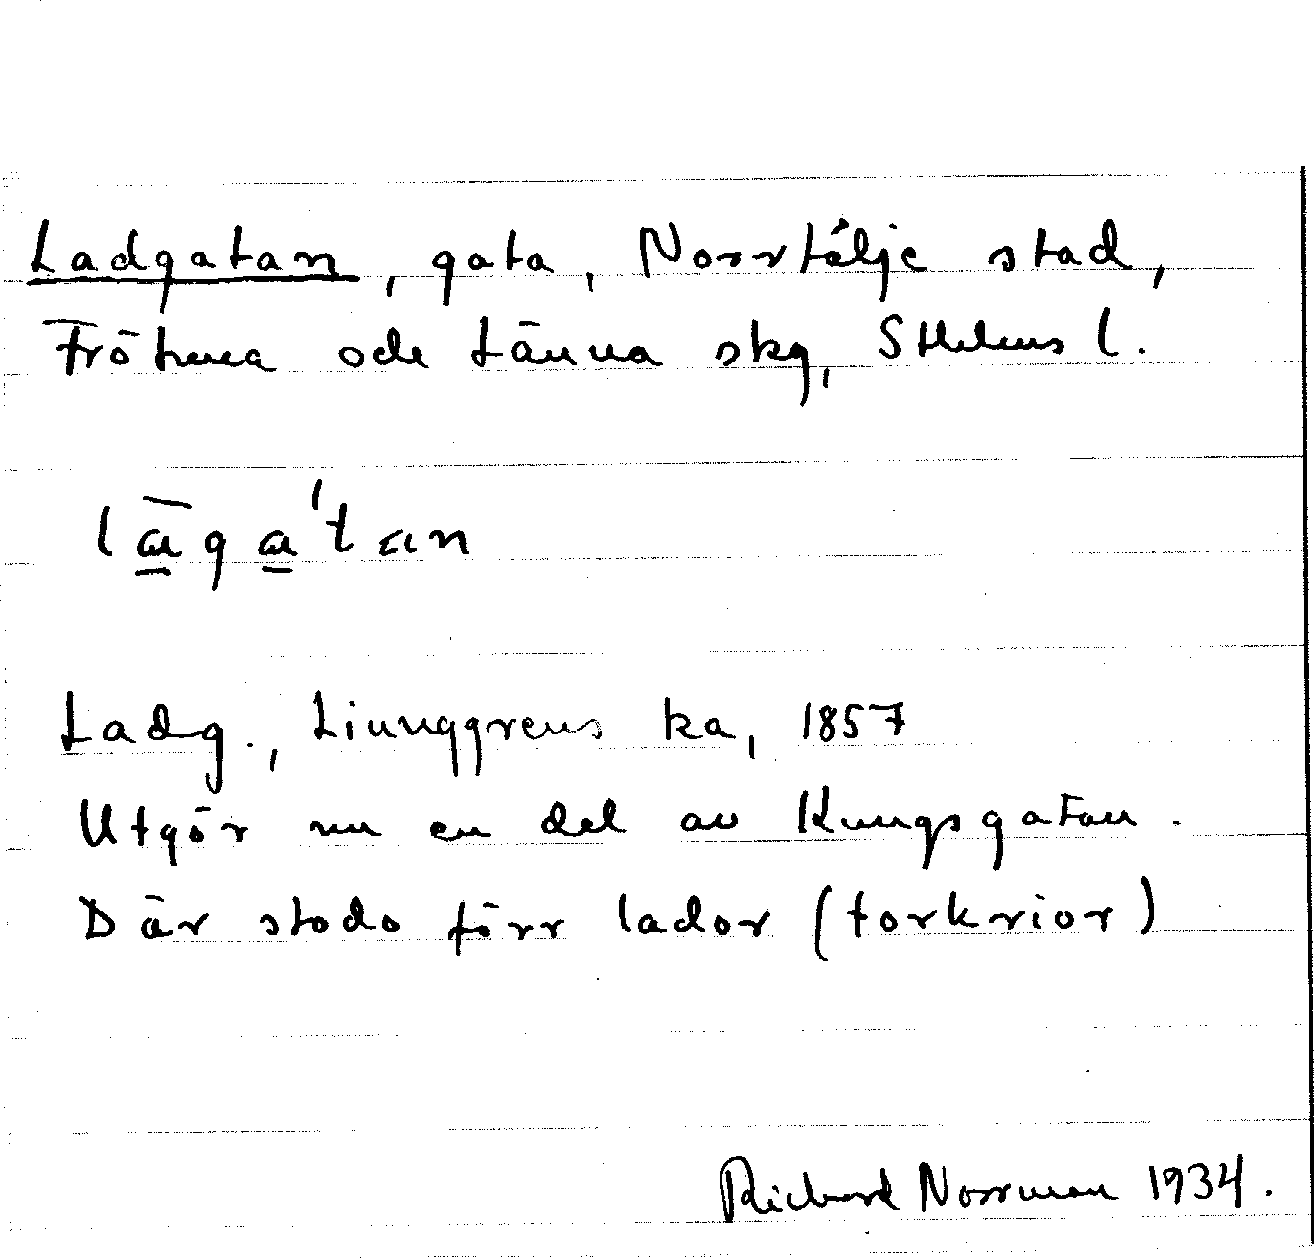 Ladgatan, gata, Norrtälje stad,
Frötuna och Länna skg, Sthlms l.
lāga'tan
Ladg., Liunggrens ka, 1857
Utgör nu en del av Kungsgatan.
Där stodo förr lador (torkrior)
Richard Norrman 1934.